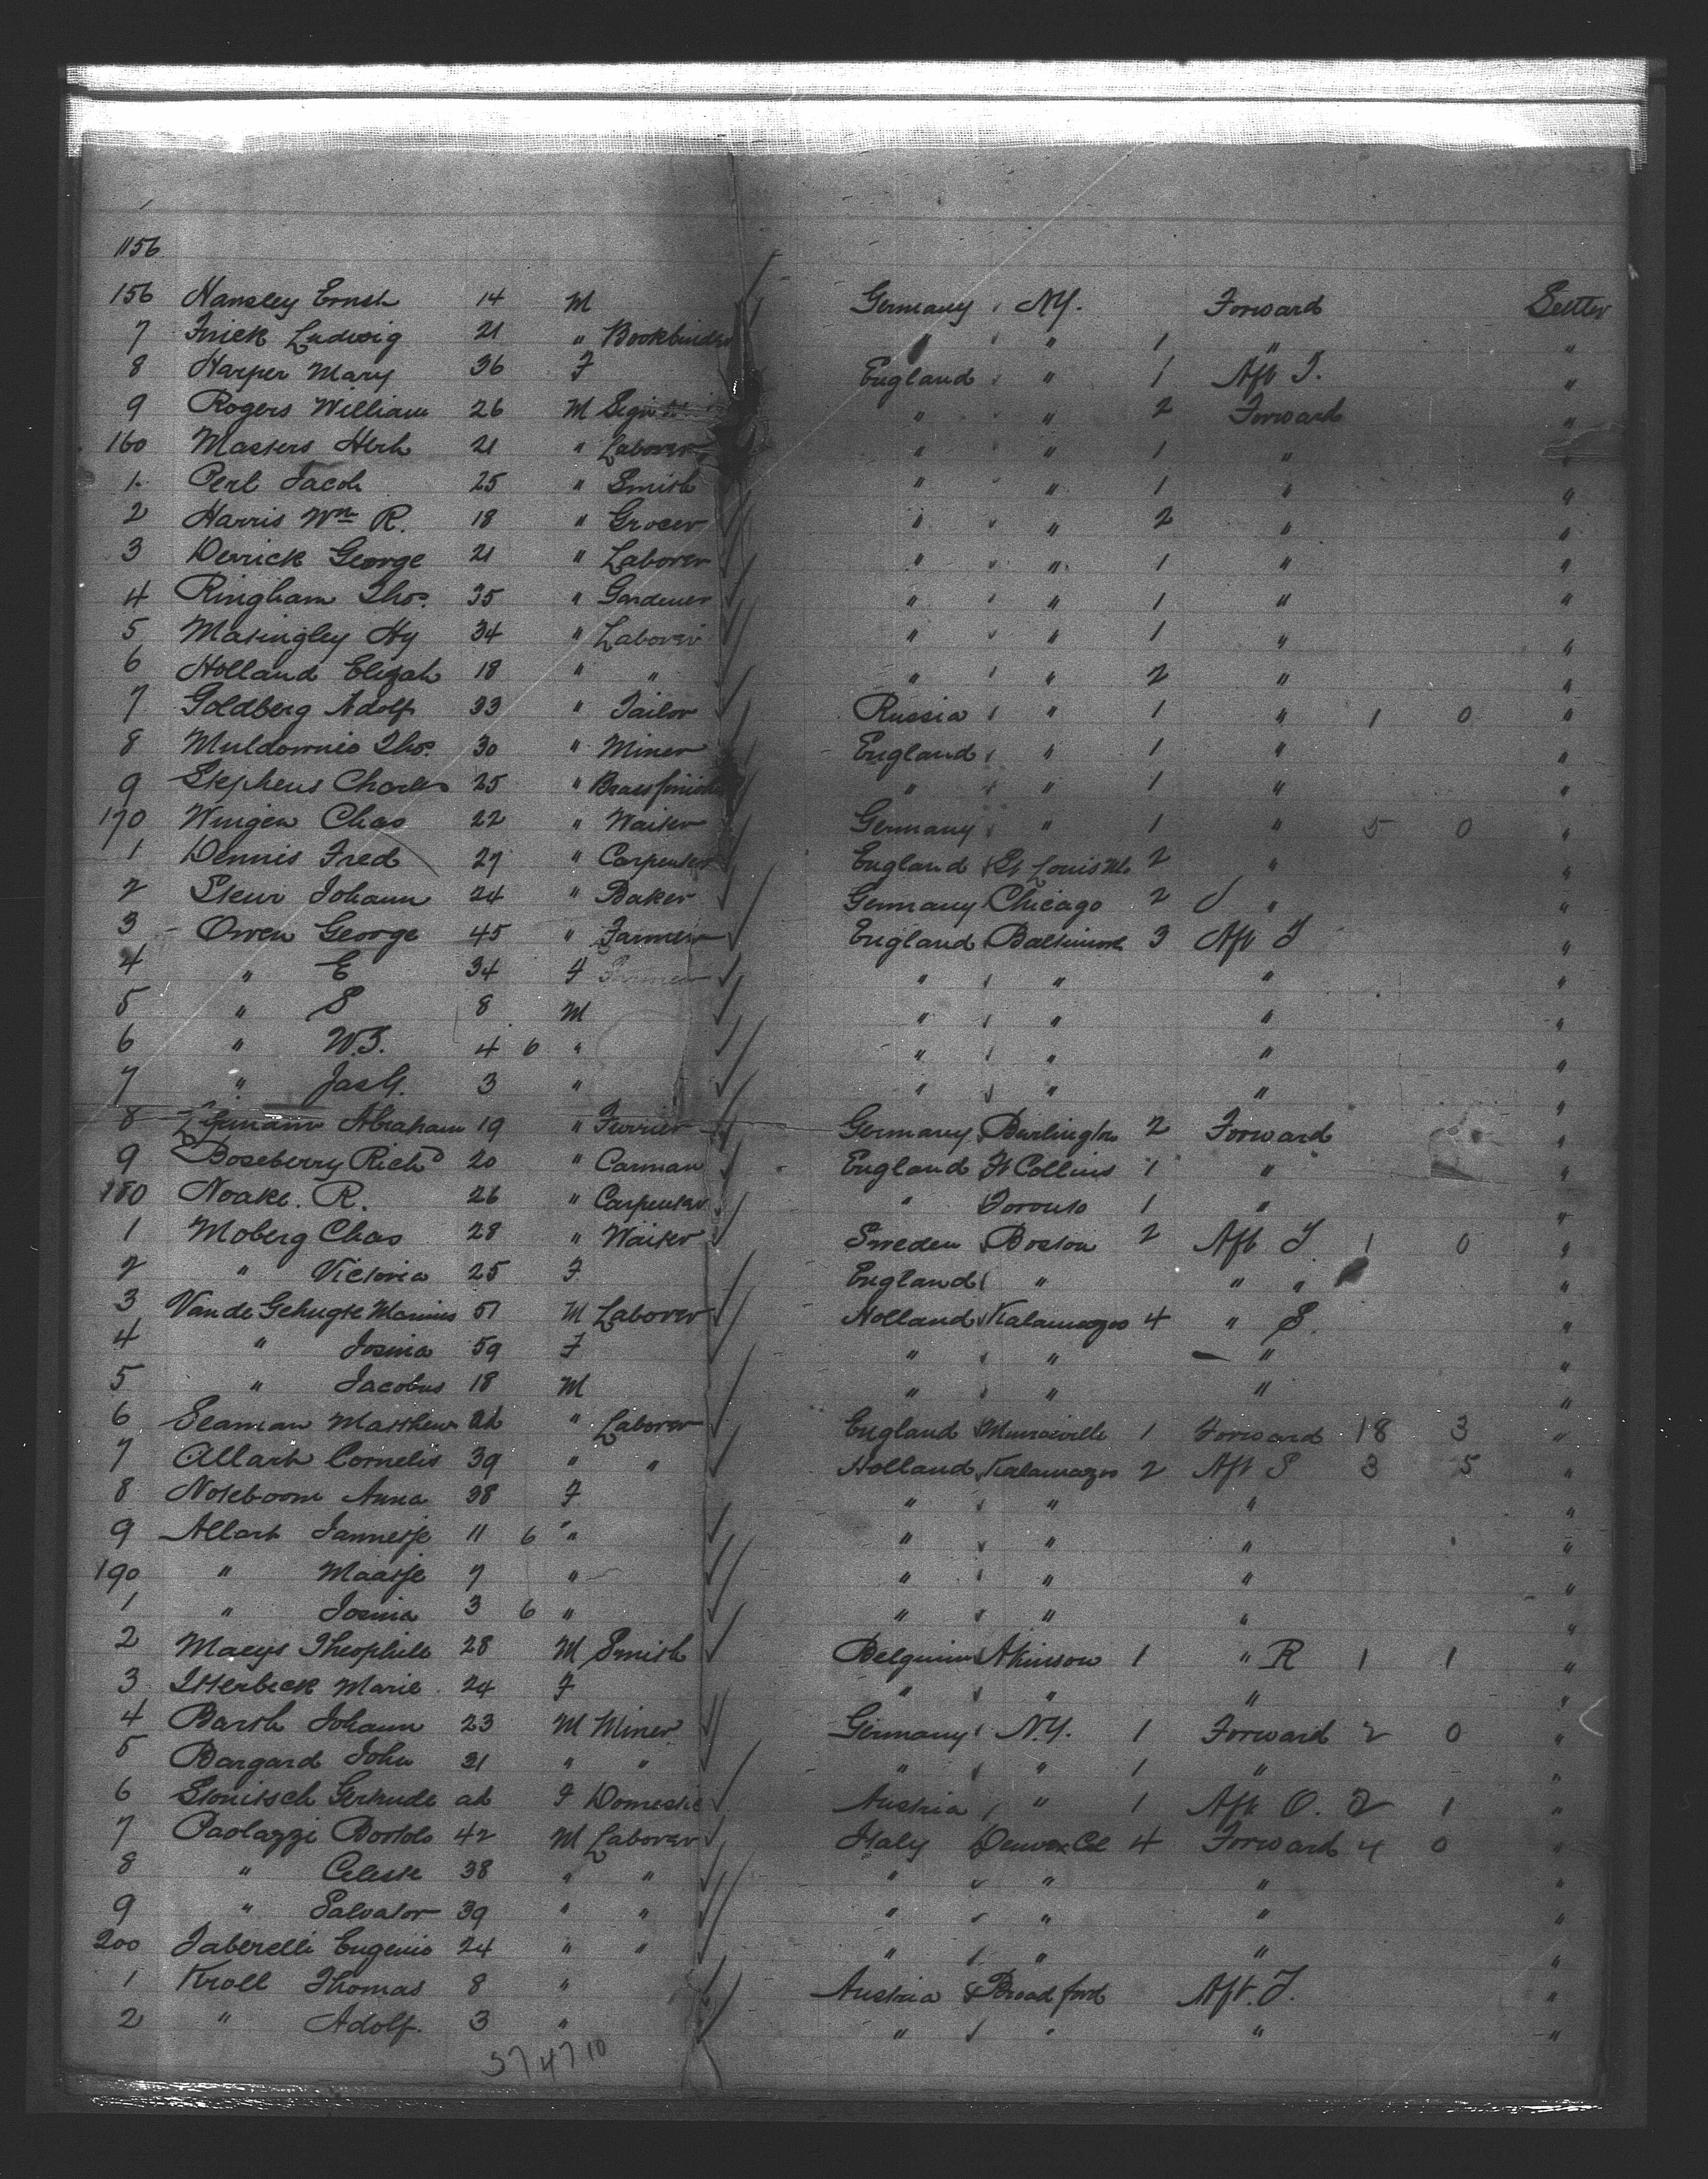 1156
156 Hansley Ernst 14 M Germany NY. Forward Settler
7 Frick Ludwig 21 " Bookbinder " " 1 " "
8 Harper Mary 36 F England " 1 Aft I. "
9 Rogers William 26 M " " 2 Forward "
160 Masters Herb 21 " Laborer " " 1 " "
1 Perl Jacob 25 " Smith " " 1 " "
2 Harris Wm R. 18 " Grocer " " 2 " "
3 Derrick George 21 " Laborer " " 1 " "
4 Ringham Thos. 35 " Gardener " " 1 " "
5 Masingley Hy 34 " Laborer " " 1 " "
6 Holland Elizah 18 " " " " 2 " "
7 Goldberg Adolf 33 " Tailor Russia " 1 " 1 0 "
8 Muldownie Thos. 30 " Miner England " 1 " "
9 Stephens Charles 25 " Brassfinisher " " 1 " "
170 Wingen Chas 22 " Waiter Germany " 1 " 5 0 "
1 Dennis Fred 27 " Carpenter England St Louis Mo 2 " "
2 Steur Johann 24 " Baker Germany Chicago 2 " "
3 Owen George 45 " Farmer England Baltimore 3 Aft I "
4 " E 34 F Farmer " " " "
5 " S 8 M " " " "
6 " W.T. 4 6 " " " " "
7 " Jas G. 3 " " " " "
8 Abraham 19 " Furrier Germany Burlington 2 Forward "
9 Boseberry Richd 20 " Carman England Ft Collins 1 " "
180 Noake. R. 26 " Carpenter " Toronto 1 " "
1 Moberg Chas 28 " Waiter Sweden Boston 2 Aft I 1 0 "
2 " Victoria 25 F England " " " "
3 Van de Gehugte Marinus 51 M Laborer Holland Kalamazoo 4 " S. "
4 " Josina 59 F " " " "
5 " Jacobus 18 M " " " "
6 Seaman Matthew ad " Laborer England Munroeville 1 Forward 18 3 "
7 Allart Cornelis 39 " " Holland Kalamazoo 2 Aft S 3 5 "
8 Noteboom Anna 38 F " " " "
9 Allart Jannetje 11 6 " " " " "
190 " Maatje 7 " " " " "
1 " Josina 3 6 " " " " "
2 Maeys Theophile 28 M Smith Belgium Atkinson 1 " R 1 1 "
3 Itterbeck Marie 24 F " " " "
4 Barth Johann 23 M Miner Germany N.Y. 1 Forward 2 0 "
5 Bargard John 31 " " " " 1 " "
6 Stonitsch Gertrude ad F Domestic Austria " 1 Aft O. 2 1 "
7 Paolazzi Bortolo 42 M Laborer Italy Denver Col 4 Forward 4 0 "
8 " Celeste 38 " " " " " "
9 " Salvator 39 " " " " " "
200 Taberelli Eugenio 24 " " " " " "
1 Kroll Thomas 8 " Austria Broadford Aft. I. "
2 " Adolf. 3 " " " " "
37 47 10